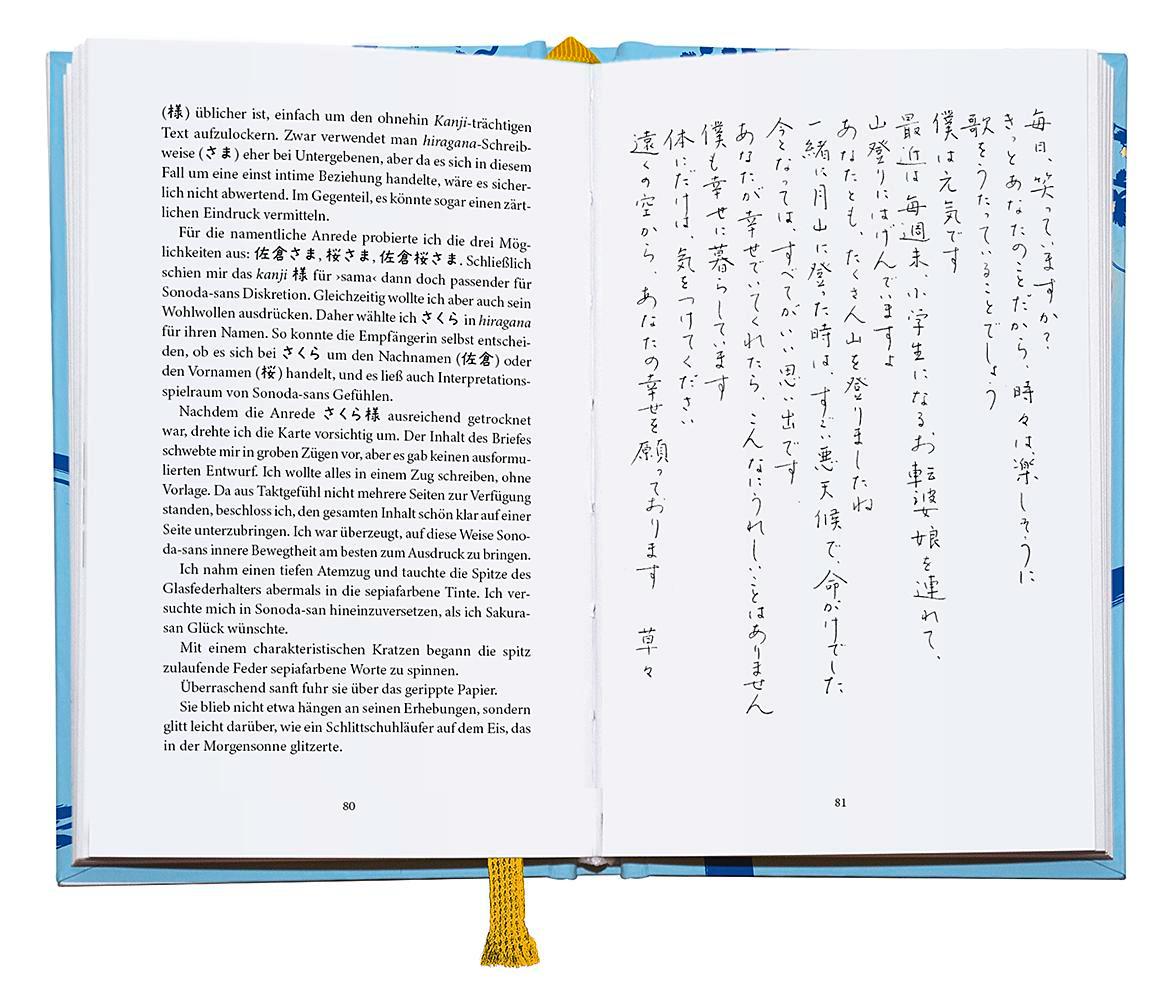 (様) üblicher ist, einfach um den ohnehin Kanji-trächtigen
Text aufzulockern. Zwar verwendet man hiragana-Schreib-
weise (さま) eher bei Untergebenen, aber da es sich in diesem
Fall um eine einst intime Beziehung handelte, wäre es sicher-
lich nicht abwertend. Im Gegenteil, es könnte sogar einen zärt-
lichen Eindruck vermitteln.
Für die namentliche Anrede probierte ich die drei Mög-
lichkeiten aus: 佐倉さま, 桜さま, 佐倉桜さま. Schließlich
schien mir das kanji 様 für ›sama‹ dann doch passender für
Sonoda-sans Diskretion. Gleichzeitig wollte ich aber auch sein
Wohlwollen ausdrücken. Daher wählte ich さくら in hiragana
für ihren Namen. So konnte die Empfängerin selbst entschei-
den, ob es sich bei さくら um den Nachnamen (佐倉) oder
den Vornamen (桜) handelt, und es ließ auch Interpretations-
spielraum von Sonoda-sans Gefühlen.
Nachdem die Anrede さくら様 ausreichend getrocknet
war, drehte ich die Karte vorsichtig um. Der Inhalt des Briefes
schwebte mir in groben Zügen vor, aber es gab keinen ausformu-
lierten Entwurf. Ich wollte alles in einem Zug schreiben, ohne
Vorlage. Da aus Taktgefühl nicht mehrere Seiten zur Verfügung
standen, beschloss ich, den gesamten Inhalt schön klar auf einer
Seite unterzubringen. Ich war überzeugt, auf diese Weise Sono-
da-sans innere Bewegtheit am besten zum Ausdruck zu bringen.
Ich nahm einen tiefen Atemzug und tauchte die Spitze des
Glasfederhalters abermals in die sepiafarbene Tinte. Ich ver-
suchte mich in Sonoda-san hineinzuversetzen, als ich Sakura-
san Glück wünschte.
Mit einem charakteristischen Kratzen begann die spitz
zulaufende Feder sepiafarbene Worte zu spinnen.
Überraschend sanft fuhr sie über das gerippte Papier.
Sie blieb nicht etwa hängen an seinen Erhebungen, sondern
glitt leicht darüber, wie ein Schlittschuhläufer auf dem Eis, das
in der Morgensonne glitzerte.
80
毎日、笑っていますか?
きっとあなたのことだから、時々は、楽しそうに
歌をうたっていることでしょう
僕は元気です
最近は毎週末、小学生になるお転婆娘を連れて、
山登りにはげんでいますよ
あなたとも、たくさん山を登りましたね
一緒に月山に登った時は、すごい悪天候で、命がけでした
今となっては、すべてがいい思い出です
あなたが幸せでいてくれたら、こんなにうれしいことはありません
僕も幸せに暮らしています
体にだけは、気をつけてください
遠くの空から、あなたの幸せを願っております 草々
81